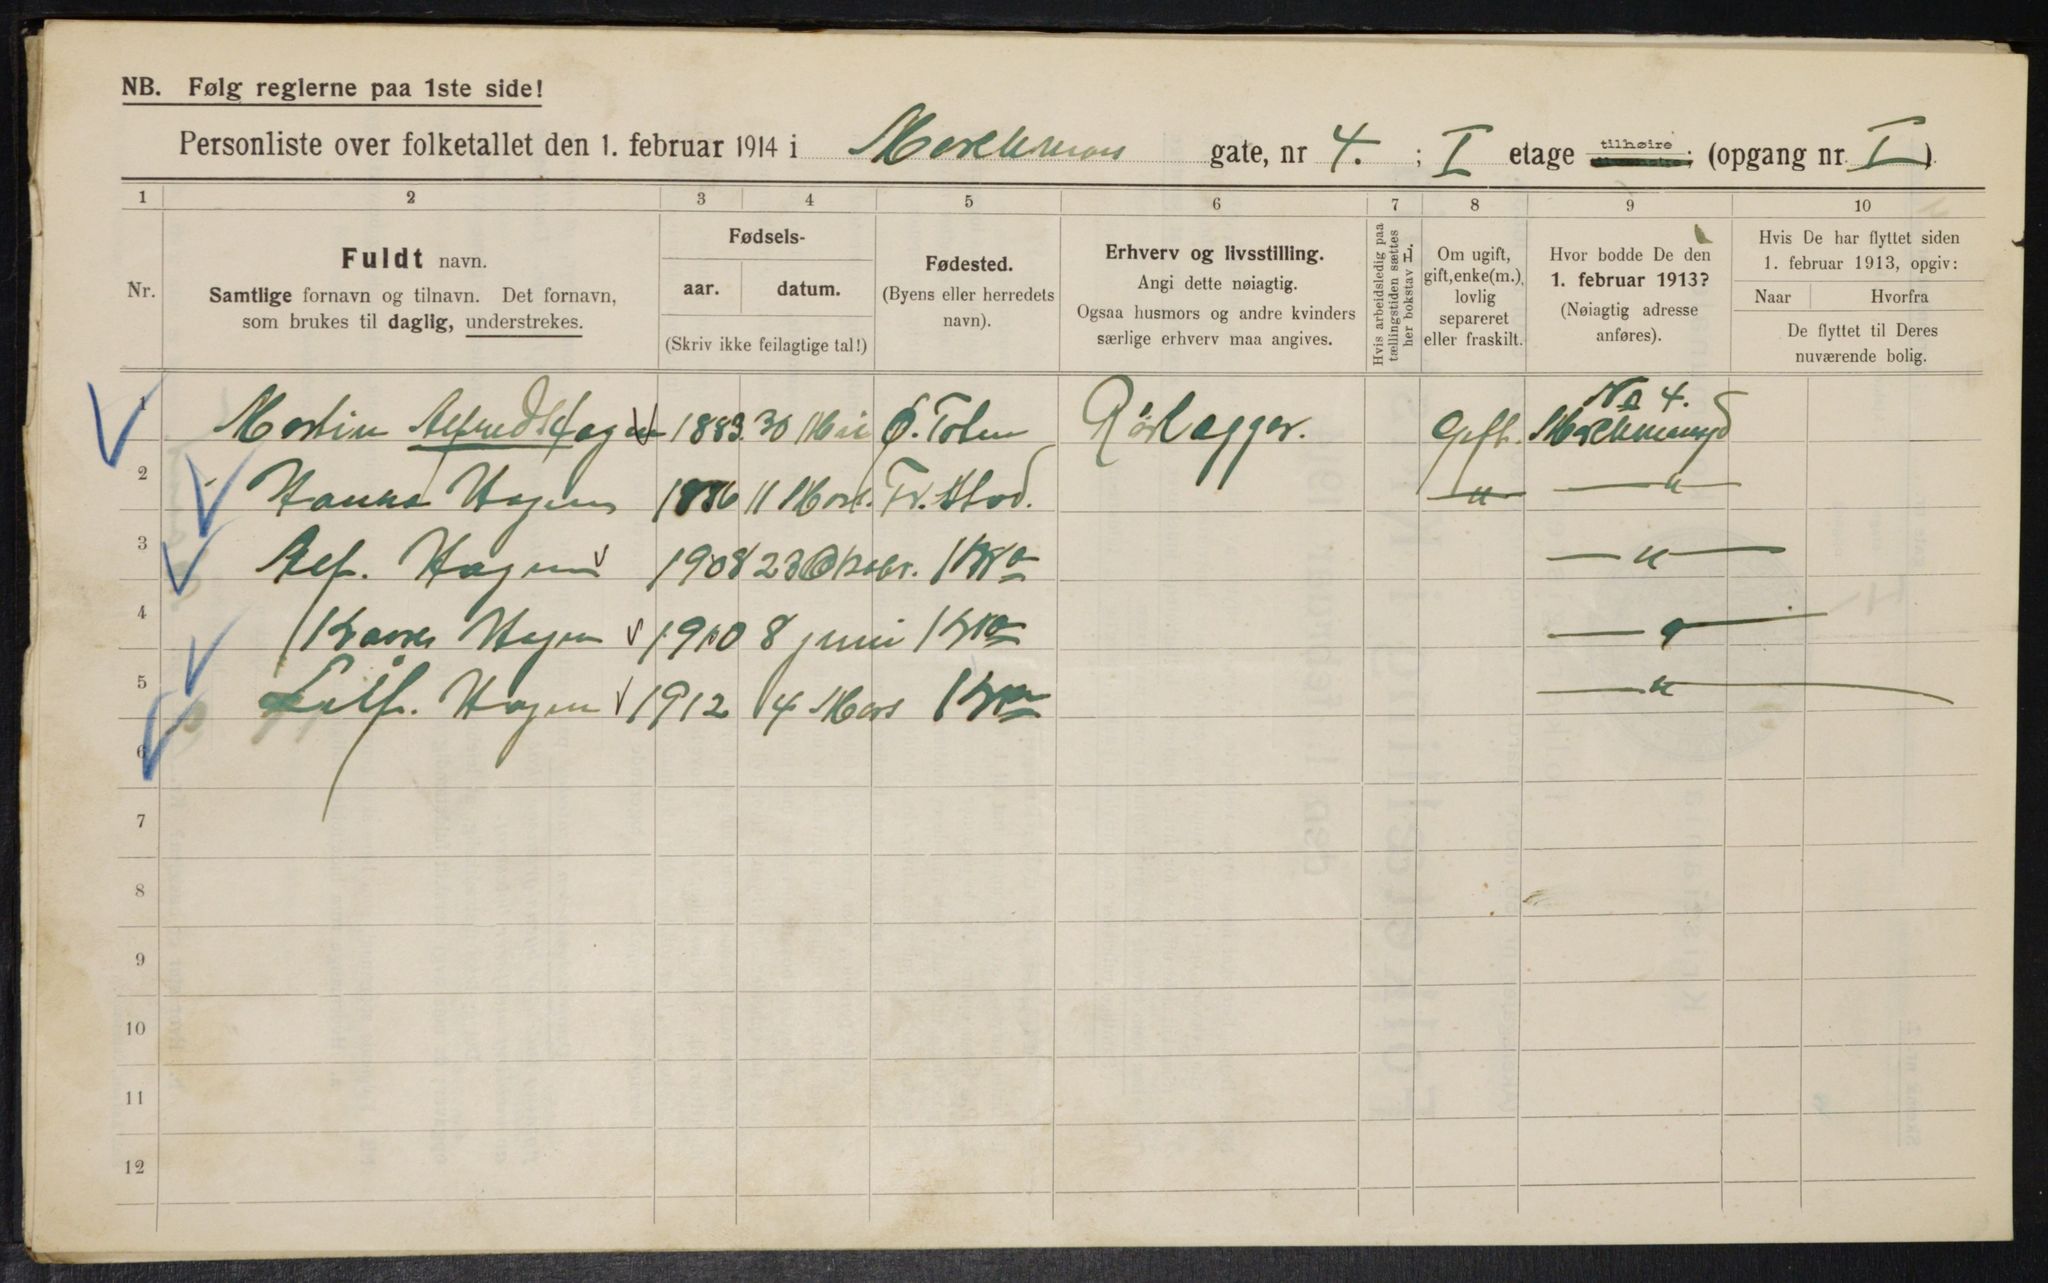 NB. Følg reglerne paa 1ste side!
Personliste over folketallet den 1. februar 1914 i Markmans gate, nr 4. ; I etage tilhøire (opgang nr I)
1 2 3 4 5 6 7 8 9 10
Nr.
Fuldt navn.
Samtlige fornavn og tilnavn. Det fornavn,
som brukes til daglig, understrekes.
Fødsels-
aar. datum.
(Skriv ikke feilagtige tal!)
Fødested.
(Byens eller herredets
navn).
Erhverv og livsstilling.
Angi dette nøiagtig.
Ogsaa husmors og andre kvinders
særlige erhverv maa angives.
Hvis arbeidsledig paa
tællingstiden sættes
her bokstav L.
Om ugift,
gift, enke(m.),
lovlig
separeret
eller fraskilt.
Hvor bodde De den
1. februar 1913?
(Nøiagtig adresse
anføres).
Hvis De har flyttet siden
1. februar 1913, opgiv:
Naar Hvorfra
De flyttet til Deres
nuværende bolig.
No 4.
1 Martin Alfred Hagen 1883. 30 Mai Ø. Toten Rörlegger. Gift.
2 Hanna Hagen 1886 11 Mars. Fr.stad. — " — — " —
3 Alf. Hagen 1908 23 Oktobr. Kra — " —
4 Hagen 1910 8 juni Kra — " —
5 Hagen 1912 4 Mars Kra — " —
6
7
8
9
10
11
12